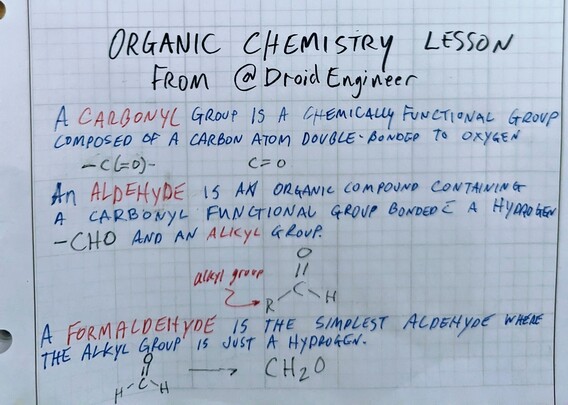 ORGANIC CHEMISTRY LESSON
FROM @DroidEngineer
A CARBONYL GROUP IS A CHEMICALLY FUNCTIONAL GROUP
COMPOSED OF A CARBON ATOM DOUBLE-BONDED TO OXYGEN
-C(=O)- C=O
An ALDEHYDE IS AN ORGANIC COMPOUND CONTAINING
A CARBONYL FUNCTIONAL GROUP BONDED A HYDROGEN
-CHO AND AN ALKYL GROUP.
O
alkyl group
C
R H
A FORMALDEHYDE IS THE SIMPLEST ALDEHYDE WHERE
THE ALKYL GROUP IS JUST A HYDROGEN.
O
H C H → CH2O